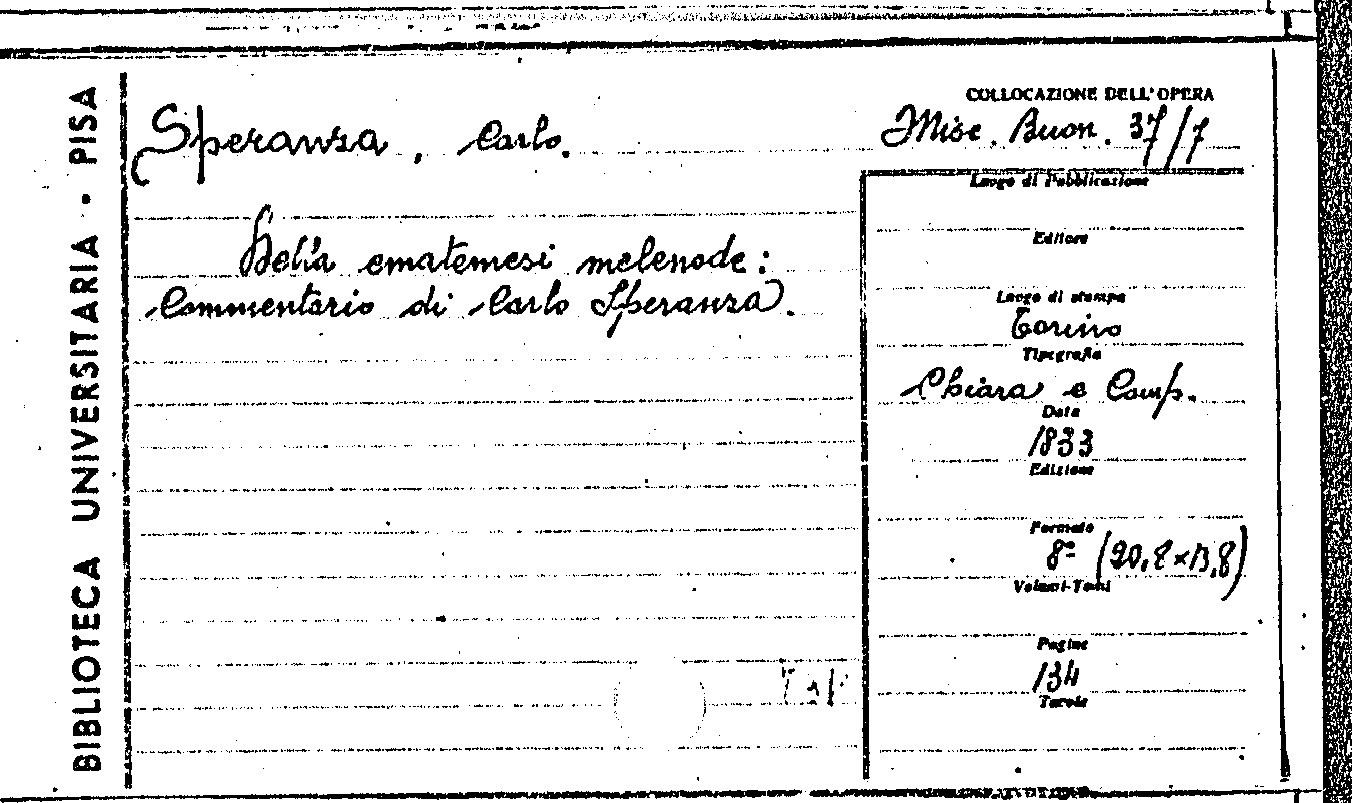 BIBLIOTECA UNIVERSITARIA - PISA
Speranza, Carlo.
Della ematemesi melenode:
Commentario di Carlo Speranza.
COLLOCAZIONE DELL'OPERA
Misc. Buon. 37/7
Luogo di Pubblicazione
Editore
Luogo di stampa
Torino
Tipografia
Chiara e Comp.
Data
1833
Edizione
Formato
8º (20,8×13,8)
Volumi-Tomi
Pagine
134
Tavole